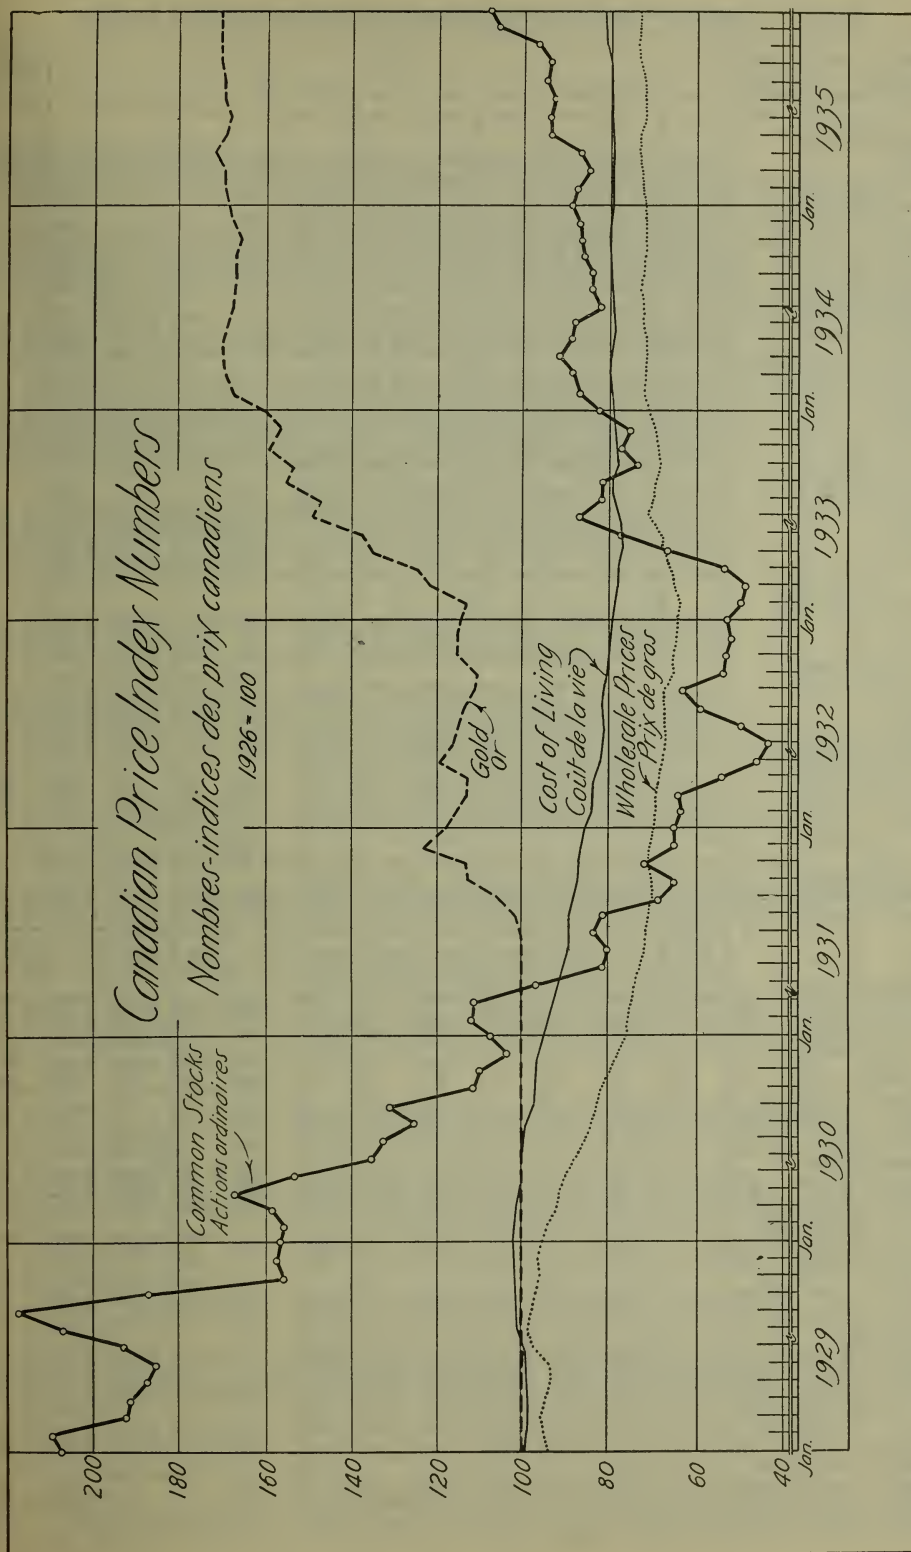 Canadian Price Index Numbers
Nombres-indices des prix canadiens
1926 = 100
Common Stocks
Actions ordinaires
Gold
Or
Cost of Living
Coût de la vie
Wholesale Prices
Prix de gros
200
180
160
140
120
100
80
60
40
Jan.
1929
Jan.
1930
Jan.
1931
Jan.
1932
Jan.
1933
Jan.
1934
Jan.
1935